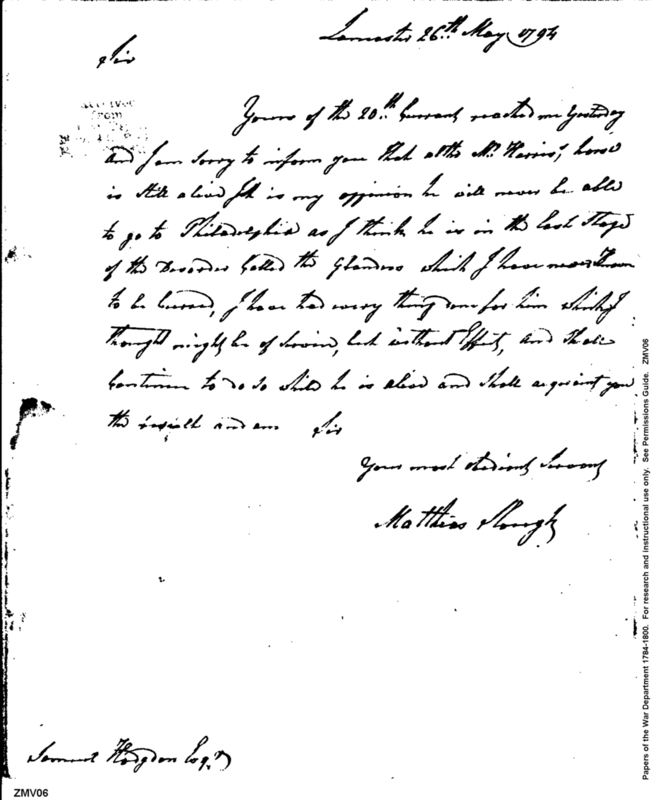 Lancaster 26th May 1794
Sir
Yours of the 20th Currant reached me Yesterday
and I am Sorry to inform you that altho Mr Harris's horse
is still alive It is my oppinion he will never be able
to go to Philadelphia as I think he is in the last stage
of the Disorder Called the Glanders which I have never known
to be Cured, I have had every thing done for him which I
thought might be of Service, but without Effect, and shall
Continue to do so while he is alive and shall acquaint you
the result and am Sir
Your most obedient Servant
Matthias Slough
Samuel Hodgdon Esqr
received
from
ZMV06
Papers of the War Department 1784-1800. For research and instructional use only. See Permissions Guide. ZMV06